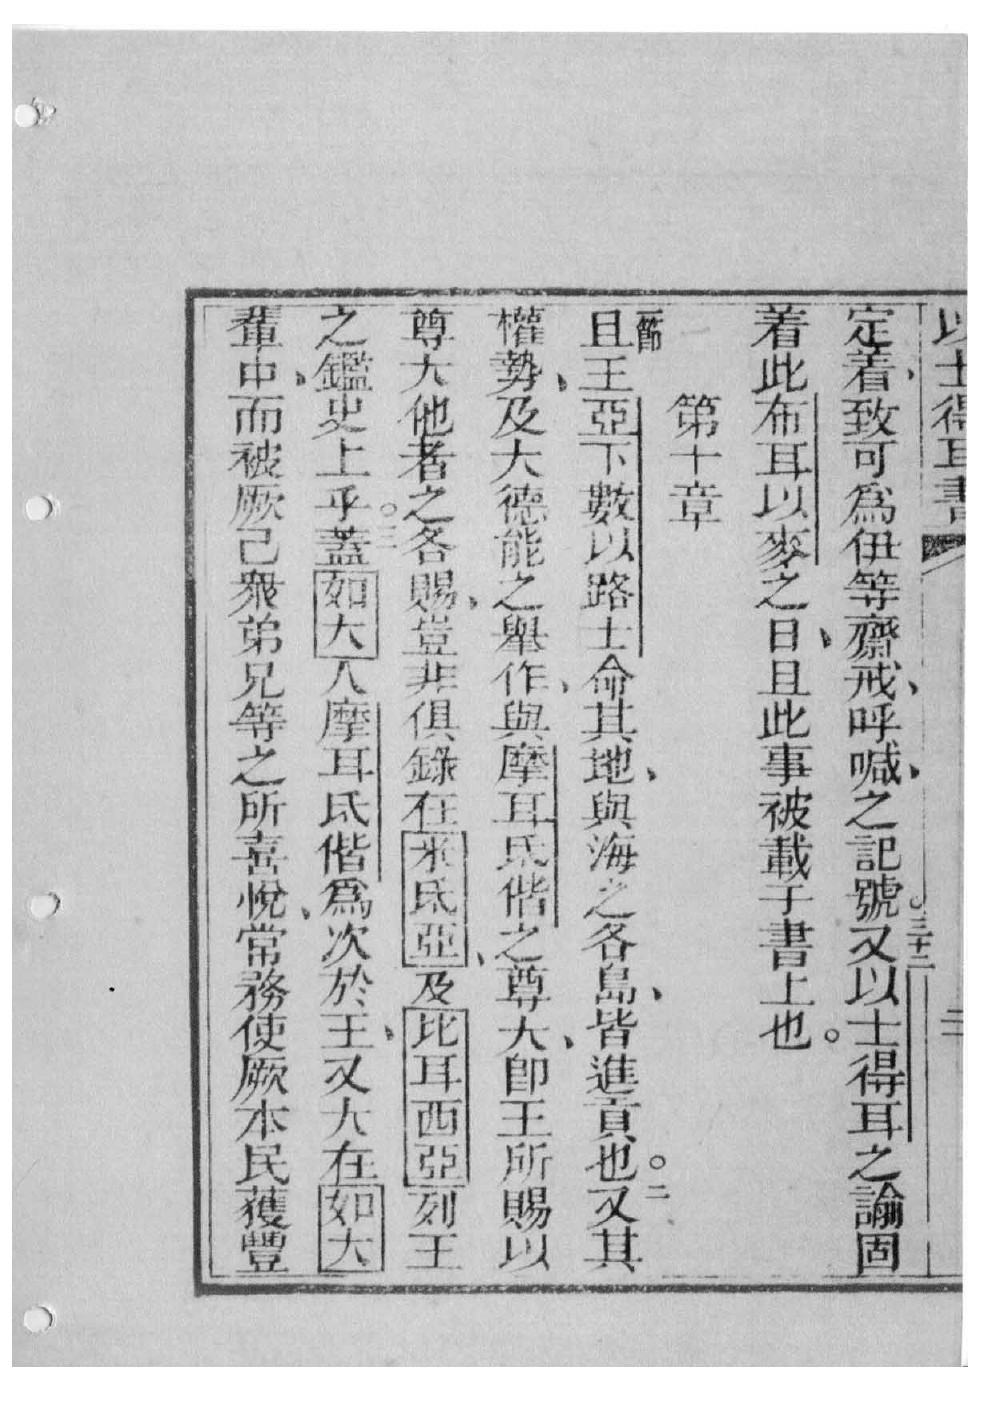 以士得耳書 二
定着、致可為伊等齋戒、呼喊、之記號。三十二又以士得耳之諭固
着此布耳以麥之日、且此事被載于書上也。
第十章
一節且王亞下數以路士命其地、與海之各島、皆進貢也。二又其
權勢、及大德能之舉作、與摩耳氐偕之尊大、卽王所賜以
尊大他者之各賜、豈非俱錄在米氐亞、及比耳西亞列王
之鑑史上乎。三蓋如大人摩耳氐偕為次於王、又大在如大
輩中、而被厥己衆弟兄等之所喜悅、常務使厥本民獲豐